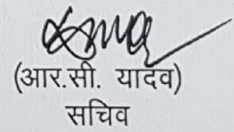 (आर.सी. यादव)
सचिव